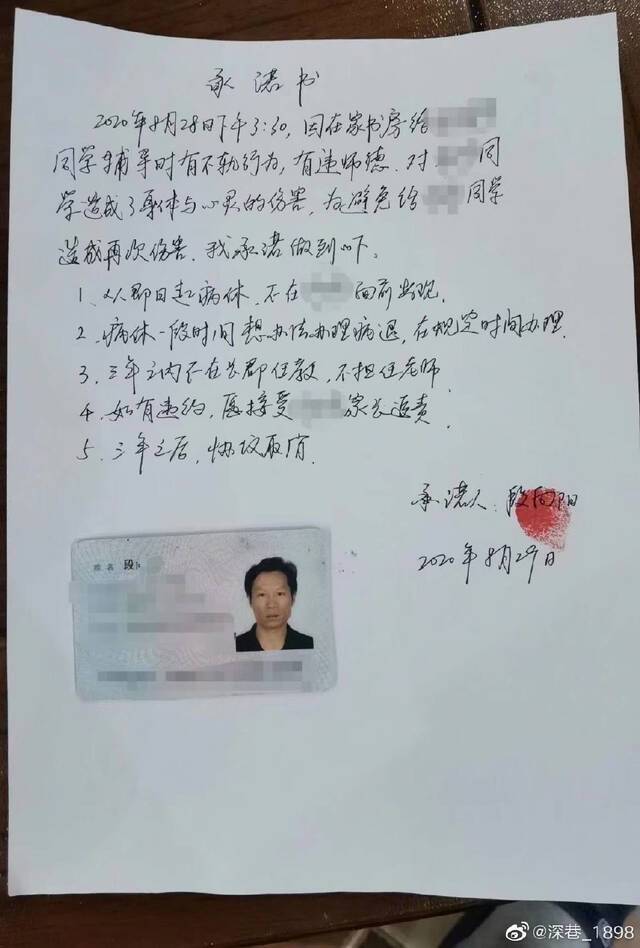 承诺书
2020年8月28日下午3:30,因在家书房给
同学辅导时有不轨行为,有违师德.对 同
学造成了身体与心灵的伤害,为避免给 同学
造成再次伤害.我承诺做到以下.
1、从即日起病休.不在 面前出现.
2、病休一段时间想办法办理病退,在规定时间办理.
3、三年之内不在长郡任教,不担任老师.
4、如有违约,愿接受 家长追责.
5、三年之后,协议取消.
承诺人:段向阳
2020年8月29日
姓名 段
@深巷_1898